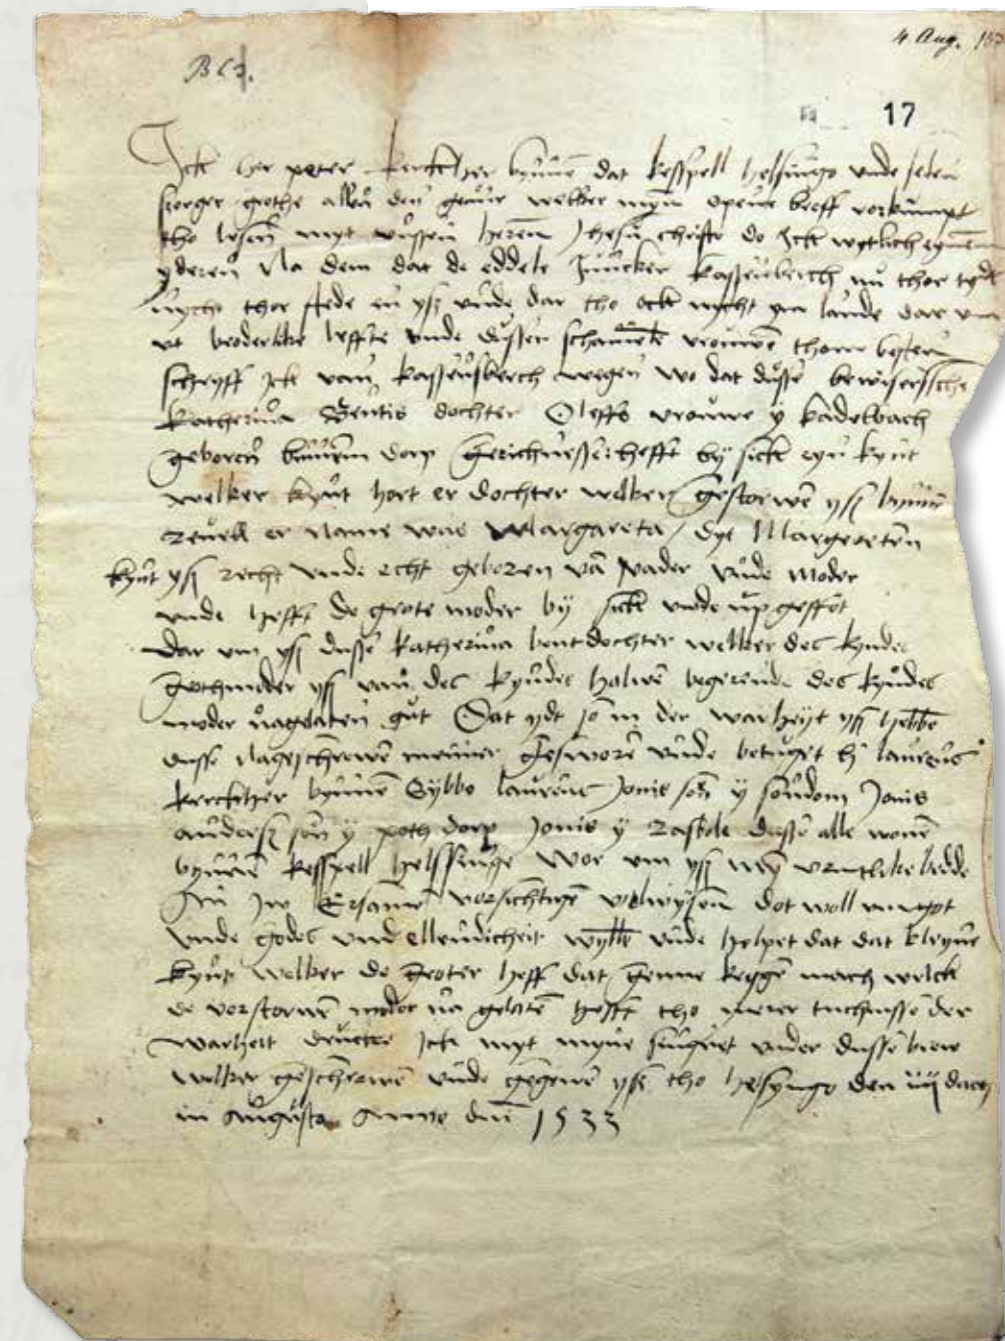 4 Aug. 153
B C 3.
17
Ick her peter kerckher bynnen dat kesspell helsingo unde selen
sorger grothe allen den genne welker myn opene breff vorkumpt
tho lesen myt unssen heren Jhesu christo do Ick wytlick eynem
yderen Na dem dat de eddele Juncker kassenberch nu thor tydt
nycht thor stede en ysz unde dar tho ock nycht ym lande dar um
ut broderlike leffte unde dusser schamele vrouwen thom besten
schryff Ick van kassensberch wegen wo dat dusse bewiserssche
Katherina Bentis dochter Oleffs vrouwe y kadelbach
geboren bynnem dorp hefft by sick eyn kynt
welker kynt hort er dochter welker gestorwen ysz bynnen
Revell er Name was Margareta / Dyt Margareten
kynt ysz recht unde echt geboren van vader unde moder
unde hefft de grote moder by sick unde up geffot
Dar um ysz dusse Katherina bent dochter welker des kyndes
grothmoder ysz van des kyndes halwen begerende des kyndes
moder nagelaten gut Dat ydt so in der warheyt ysz hebbe
dusse Nageschrewen menner gesworen unde betuget her laurens
kerckher bynnen Sybbo laurens Jonis son y sondom Jonis
anders son y poth dorp Jonis y Rastbole dusse alle wonen
bynnen kesspell helssinge Wor um ysz myn vruntlike bedde
An Jw Ersamen vorsichtigen wolwysen dot woll um got
unde godes unde ellendicheit wylle unde helpet dat dat kleyne
kynt welker de groter heff dat genne krygen mach welck
de vorstorwen moder na gelaten hefft tho merer tuchnisse der
warheit drucke Ick myt myne singnet under dusse breve
welker geschrewen unde gegewen ysz tho helsyngo den iiij dach
in Augusto Anno dm 1533